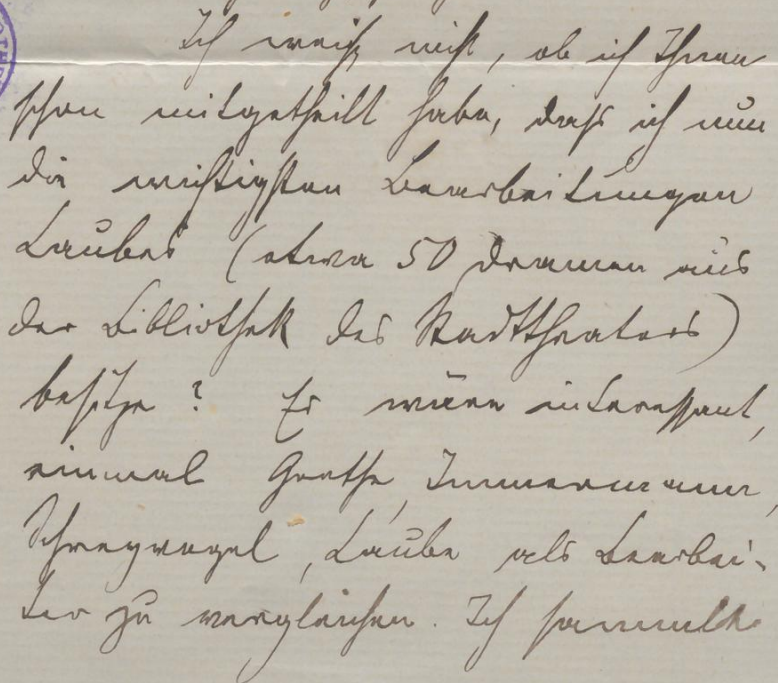 Ich weiß nicht, ob ich Ihnen
schon mitgetheilt habe, daß ich nun
die wichtigsten Bearbeitungen
Laubes (etwa 50 Dramen aus
der Bibliothek des Stadttheaters)
besitze? Es wäre interessant,
einmal Goethe, Immermann,
Schreyvogel, Laube als Bearbei-
ter zu vergleichen. Ich sammelte